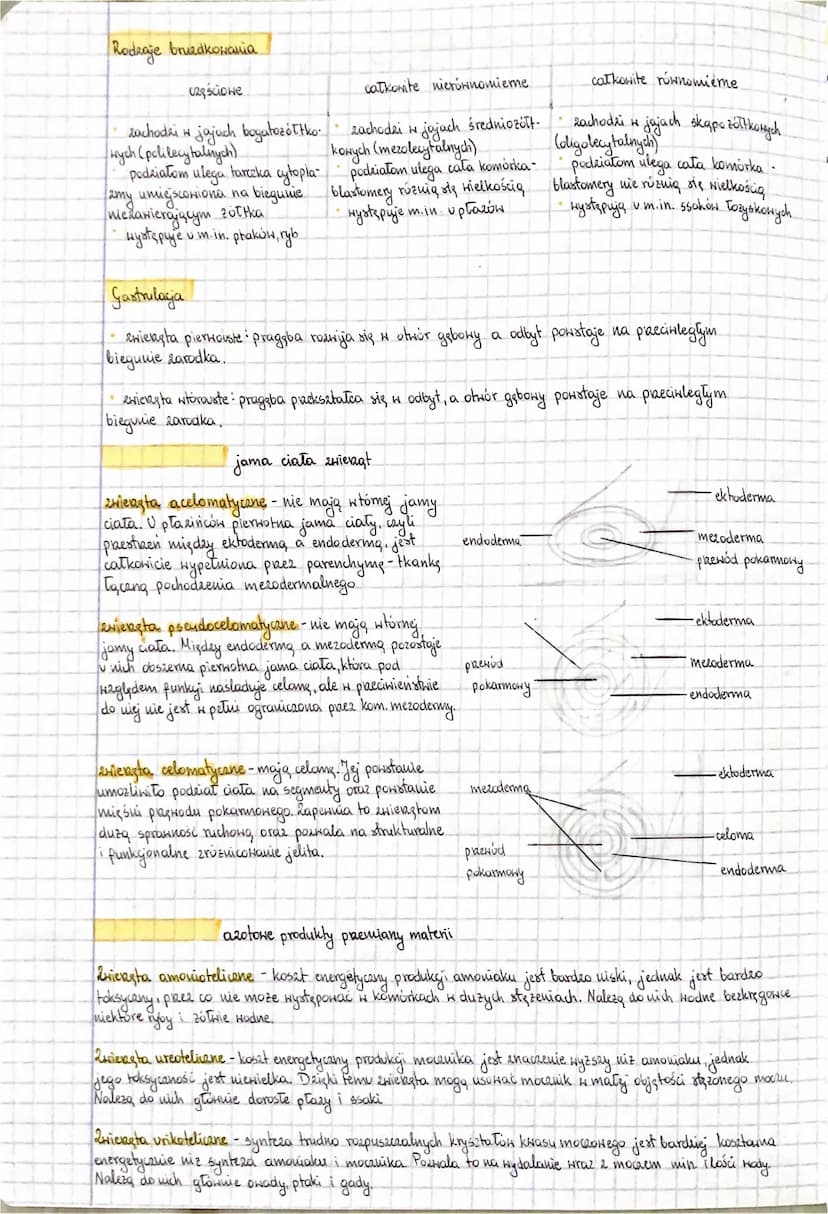 Rodzaje bruzdkowania
częściowe
całkowite nierównomierne
całkowite równomierne
• zachodzi w jajach bogatożółtko-
wych (polilecytalnych)
• podziałom ulega tarczka cytopla-
zmy umiejscowiona na biegunie
niezawierającym żółtka
• występuje u m.in. ptaków, ryb
• zachodzi w jajach średniożółt-
kowych (mezolecytalnych)
• podziałom ulega cała komórka -
blastomery różnią się wielkością
• występuje m.in. u płazów
• zachodzi w jajach skąpożółtkowych
(oligolecytalnych)
• podziałom ulega cała komórka -
blastomery nie różnią się wielkością
• występują u m.in. ssaków łożyskowych
Gastrulacja
• zwierzęta pierwouste: pragęba rozwija się w otwór gębowy a odbyt powstaje na przeciwległym
biegunie zarodka.
• zwierzęta wtórouste: pragęba przekształca się w odbyt, a otwór gębowy powstaje na przeciwległym
biegunie zarodka.
jama ciała zwierząt
zwierzęta acelomatyczne - nie mają wtórnej jamy
ciała. U płazińców pierwotna jama ciały, czyli
przestrzeń między ektodermą a endodermą, jest
całkowicie wypełniona przez parenchymę - tkankę
łączną pochodzenia mezodermalnego
ektoderma
endoderma
mezoderma
przewód pokarmowy
zwierzęta pseudocelomatyczne - nie mają wtórnej
jamy ciała. Między endodermą a mezodermą pozostaje
u nich obszerna pierwotna jama ciała, która pod
względem funkcji naśladuje celomę, ale w przeciwieństwie
do niej nie jest w pełni ograniczona przez kom. mezodermy.
ektoderma
mezoderma
przewód
pokarmowy
endoderma
zwierzęta celomatyczne - mają celomę. Jej powstanie
umożliwiło podział ciała na segmenty oraz powstanie
mięśni przewodu pokarmowego. Zapewnia to zwierzętom
dużą sprawność ruchową oraz pozwala na strukturalne
i funkcjonalne zróżnicowanie jelita.
ektoderma
mezoderma
celoma
przewód
pokarmowy
endoderma
azotowe produkty przemiany materii
Zwierzęta amonioteliczne - koszt energetyczny produkcji amoniaku jest bardzo niski, jednak jest bardzo
toksyczny, przez co nie może występować w komórkach w dużych stężeniach. Należą do nich wodne bezkręgowce
niektóre ryby i żółwie wodne.
Zwierzęta ureoteliczne - koszt energetyczny produkcji mocznika jest znacznie wyższy niż amoniaku, jednak
jego toksyczność jest niewielka. Dzięki temu zwierzęta mogą usuwać mocznik w małej objętości stężonego moczu.
Należą do nich głównie dorosłe płazy i ssaki
Zwierzęta urikoteliczne - synteza trudno rozpuszczalnych kryształów kwasu moczowego jest bardziej kosztowna
energetycznie niż synteza amoniaku i mocznika. Pozwala to na wydalanie wraz z moczem min. ilości wody.
Należą do nich głównie owady, ptaki i gady.